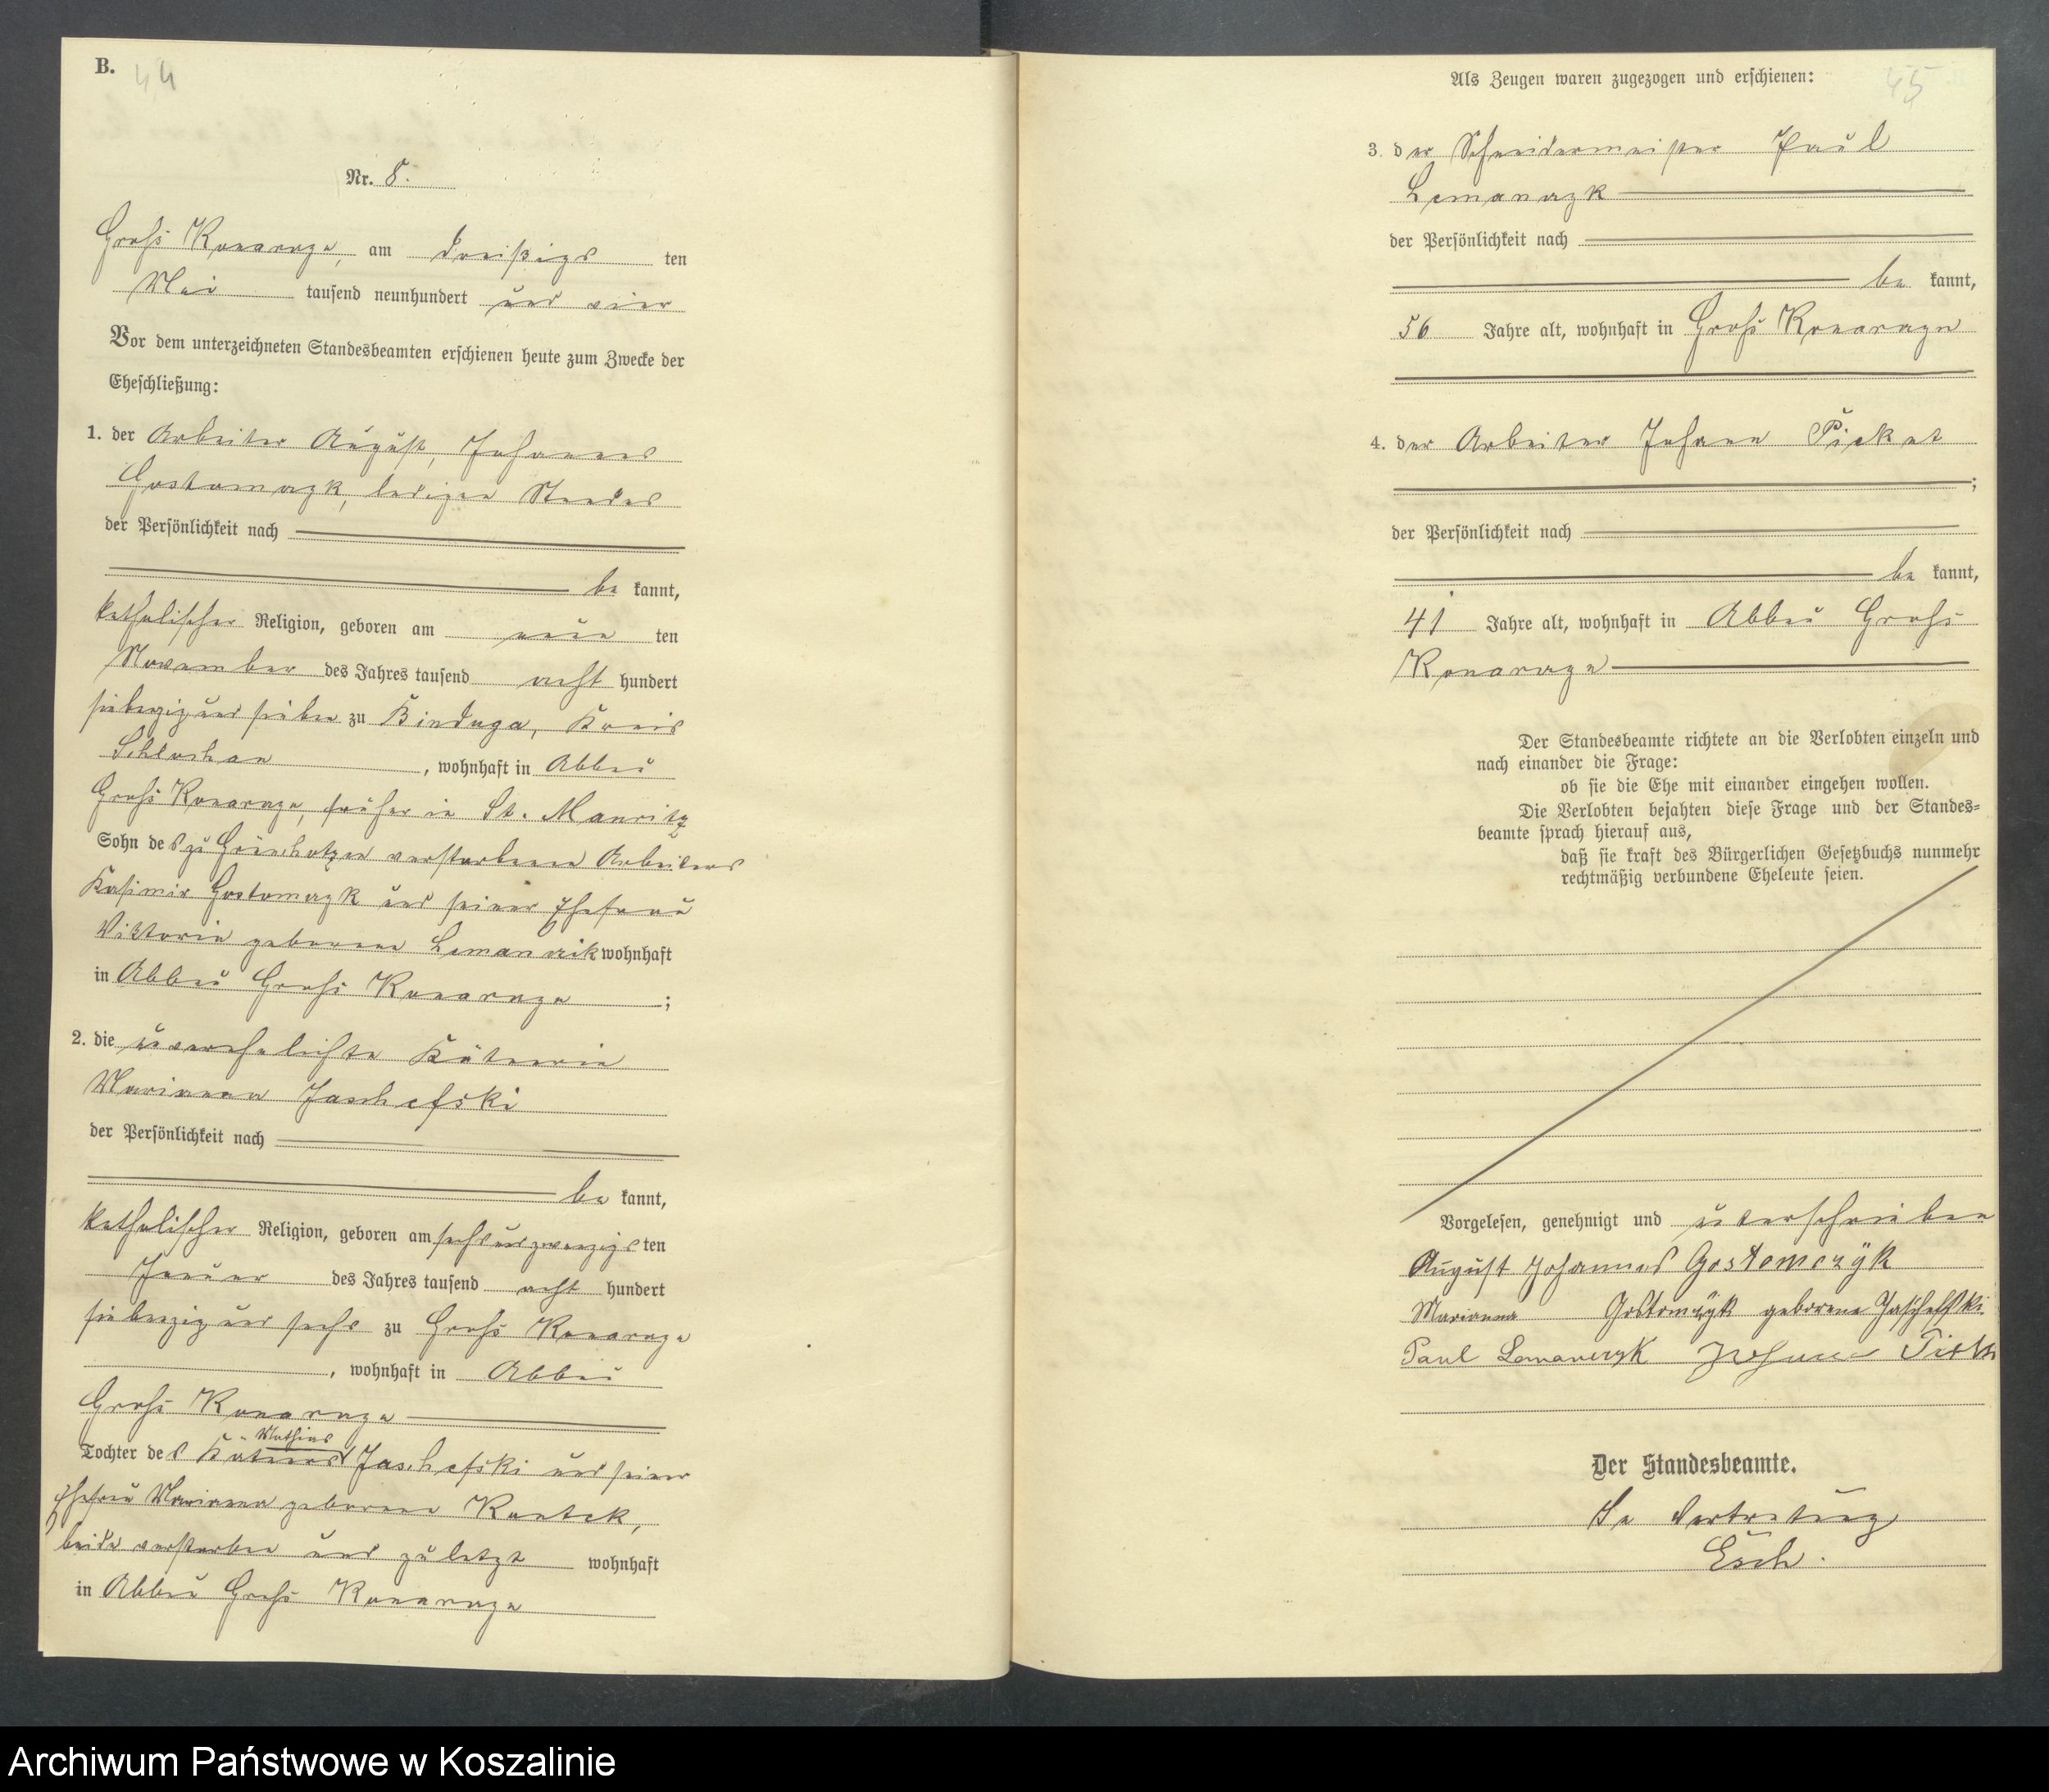 B.
44
Nr. 8.
Groß Konarzyn, am dreißigs ten
Mai tausend neunhundert und vier
Vor dem unterzeichneten Standesbeamten erschienen heute zum Zwecke der
Eheschließung:
1. der Arbeiter August, Johannes
Gostomczyk, ledigen Standes
der Persönlichkeit nach
be kannt,
katholischer Religion, geboren am neun ten
November des Jahres tausend acht hundert
siebenzig und sieben zu Binduga, Kreis
Schlochau, wohnhaft in Abbau
Groß Konarzyn, früher in St. Mauritz
Sohn des zu Grünchotzen verstorbenen Arbeiters
Kasimir Gostomczyk und seiner Ehefrau
Viktoria geborene Lemanczik wohnhaft
in Abbau Groß Konarzyn ;
2. die unverehelichte Kätnerin
Marianna Jaschefski
der Persönlichkeit nach
be kannt,
katholischer Religion, geboren am sechsundzwanzigs ten
Januar des Jahres tausend acht hundert
siebenzig und sechs zu Groß Konarzyn
, wohnhaft in Abbau
Groß Konarzyn
Mathias
Tochter des Kätners Jaschefski und seiner
Ehefrau Marianna geborene Kontek,
beide verstorben und zuletzt wohnhaft
in Abbau Groß Konarzyn
Als Zeugen waren zugezogen und erschienen:
45
3. der Schneidermeister Paul
Lemanczyk
der Persönlichkeit nach
be kannt,
56 Jahre alt, wohnhaft in Groß Konarzyn
4. der Arbeiter Johann Pickat
;
der Persönlichkeit nach
be kannt,
41 Jahre alt, wohnhaft in Abbau Groß
Konarzyn
Der Standesbeamte richtete an die Verlobten einzeln und
nach einander die Frage:
ob sie die Ehe mit einander eingehen wollen.
Die Verlobten bejahten diese Frage und der Standes=
beamte sprach hierauf aus,
daß sie kraft des Bürgerlichen Gesetzbuchs nunmehr
rechtmäßig verbundene Eheleute seien.
Vorgelesen, genehmigt und unterschrieben
August Johannes Gostomczÿk
Marianna Gostomczÿk geborene Jascheffski
Paul Lemanczyk Johann
Der Standesbeamte.
In Vertretung
Esch.
Archiwum Państwowe w Koszalinie